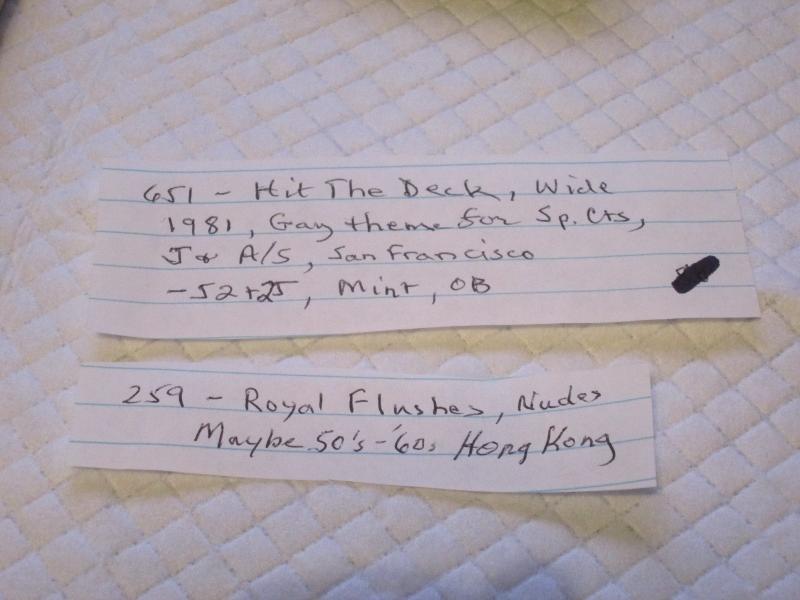 651 - Hit The Deck, Wide
1981, Gay theme for Sp. Cts,
J & A/S, San Francisco
-52+2J, Mint, OB
259 - Royal Flushes, Nudes
Maybe 50's-'60s Hong Kong